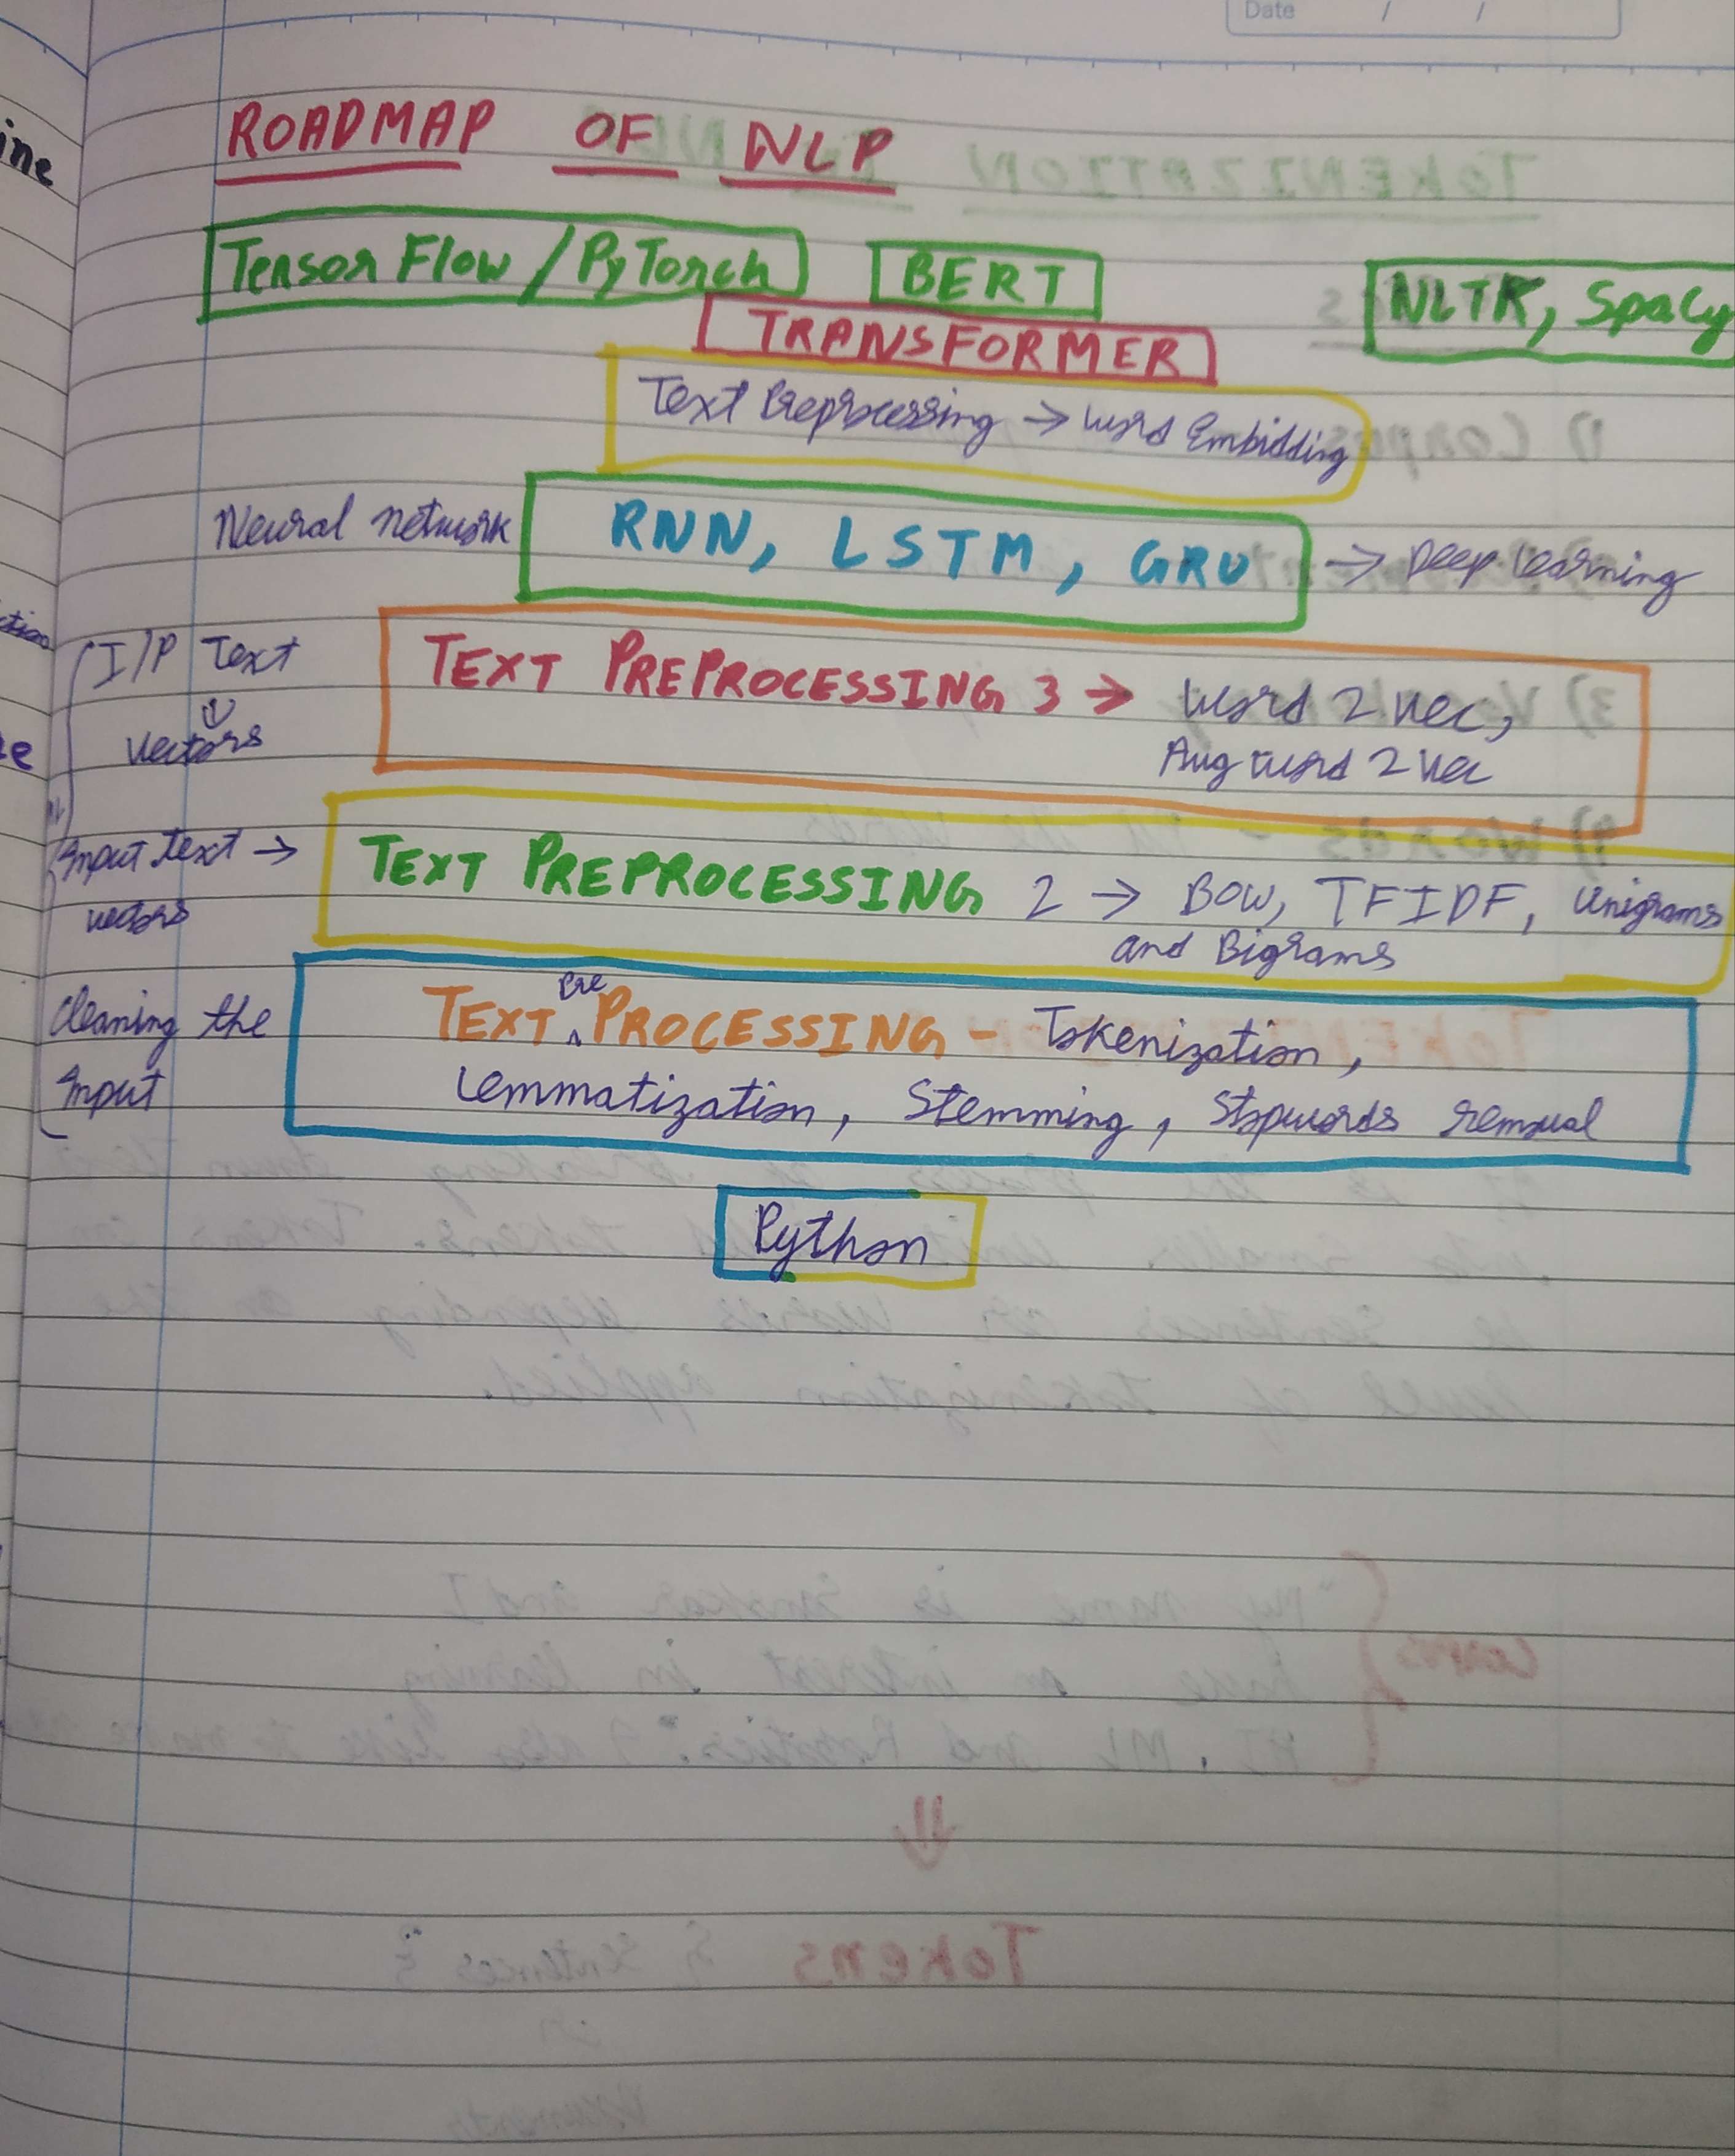 Date / /
ROADMAP OF NLP
Tensor Flow / PyTorch BERT NLTK, Spacy
TRANSFORMER
Text Preprocessing → Word Embidding
Neural network RNN, LSTM, GRU → Deep Learning
I/P Text TEXT PREPROCESSING 3 → Word 2 Vec,
↓
Vectors Aug Word 2 Vec
Input text → TEXT PREPROCESSING 2 → BOW, TFIDF, Unigrams
vectors and Bigrams
Cleaning the TEXT Pre PROCESSING - Tokenization,
Input Lemmatization, Stemming, Stopwords removal
Python